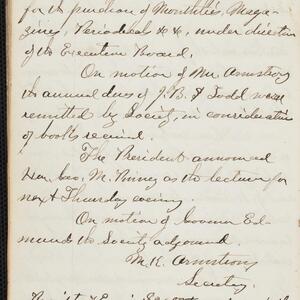 for the purchase of Monthlies, Maga-
zines, Periodicals &c, under direction
of the Executive Board.
On motion of Mr Armstrong
the annual dues of J. B. S. Todd were
remitted by Society, in consideration
of books received.
The President announced
Hon. Geo. M. Pinney as the lecturer for
next Thursday evening.
On motion of Governor Ed-
munds the Society adjourned.
M. K. Armstrong
Secretary.